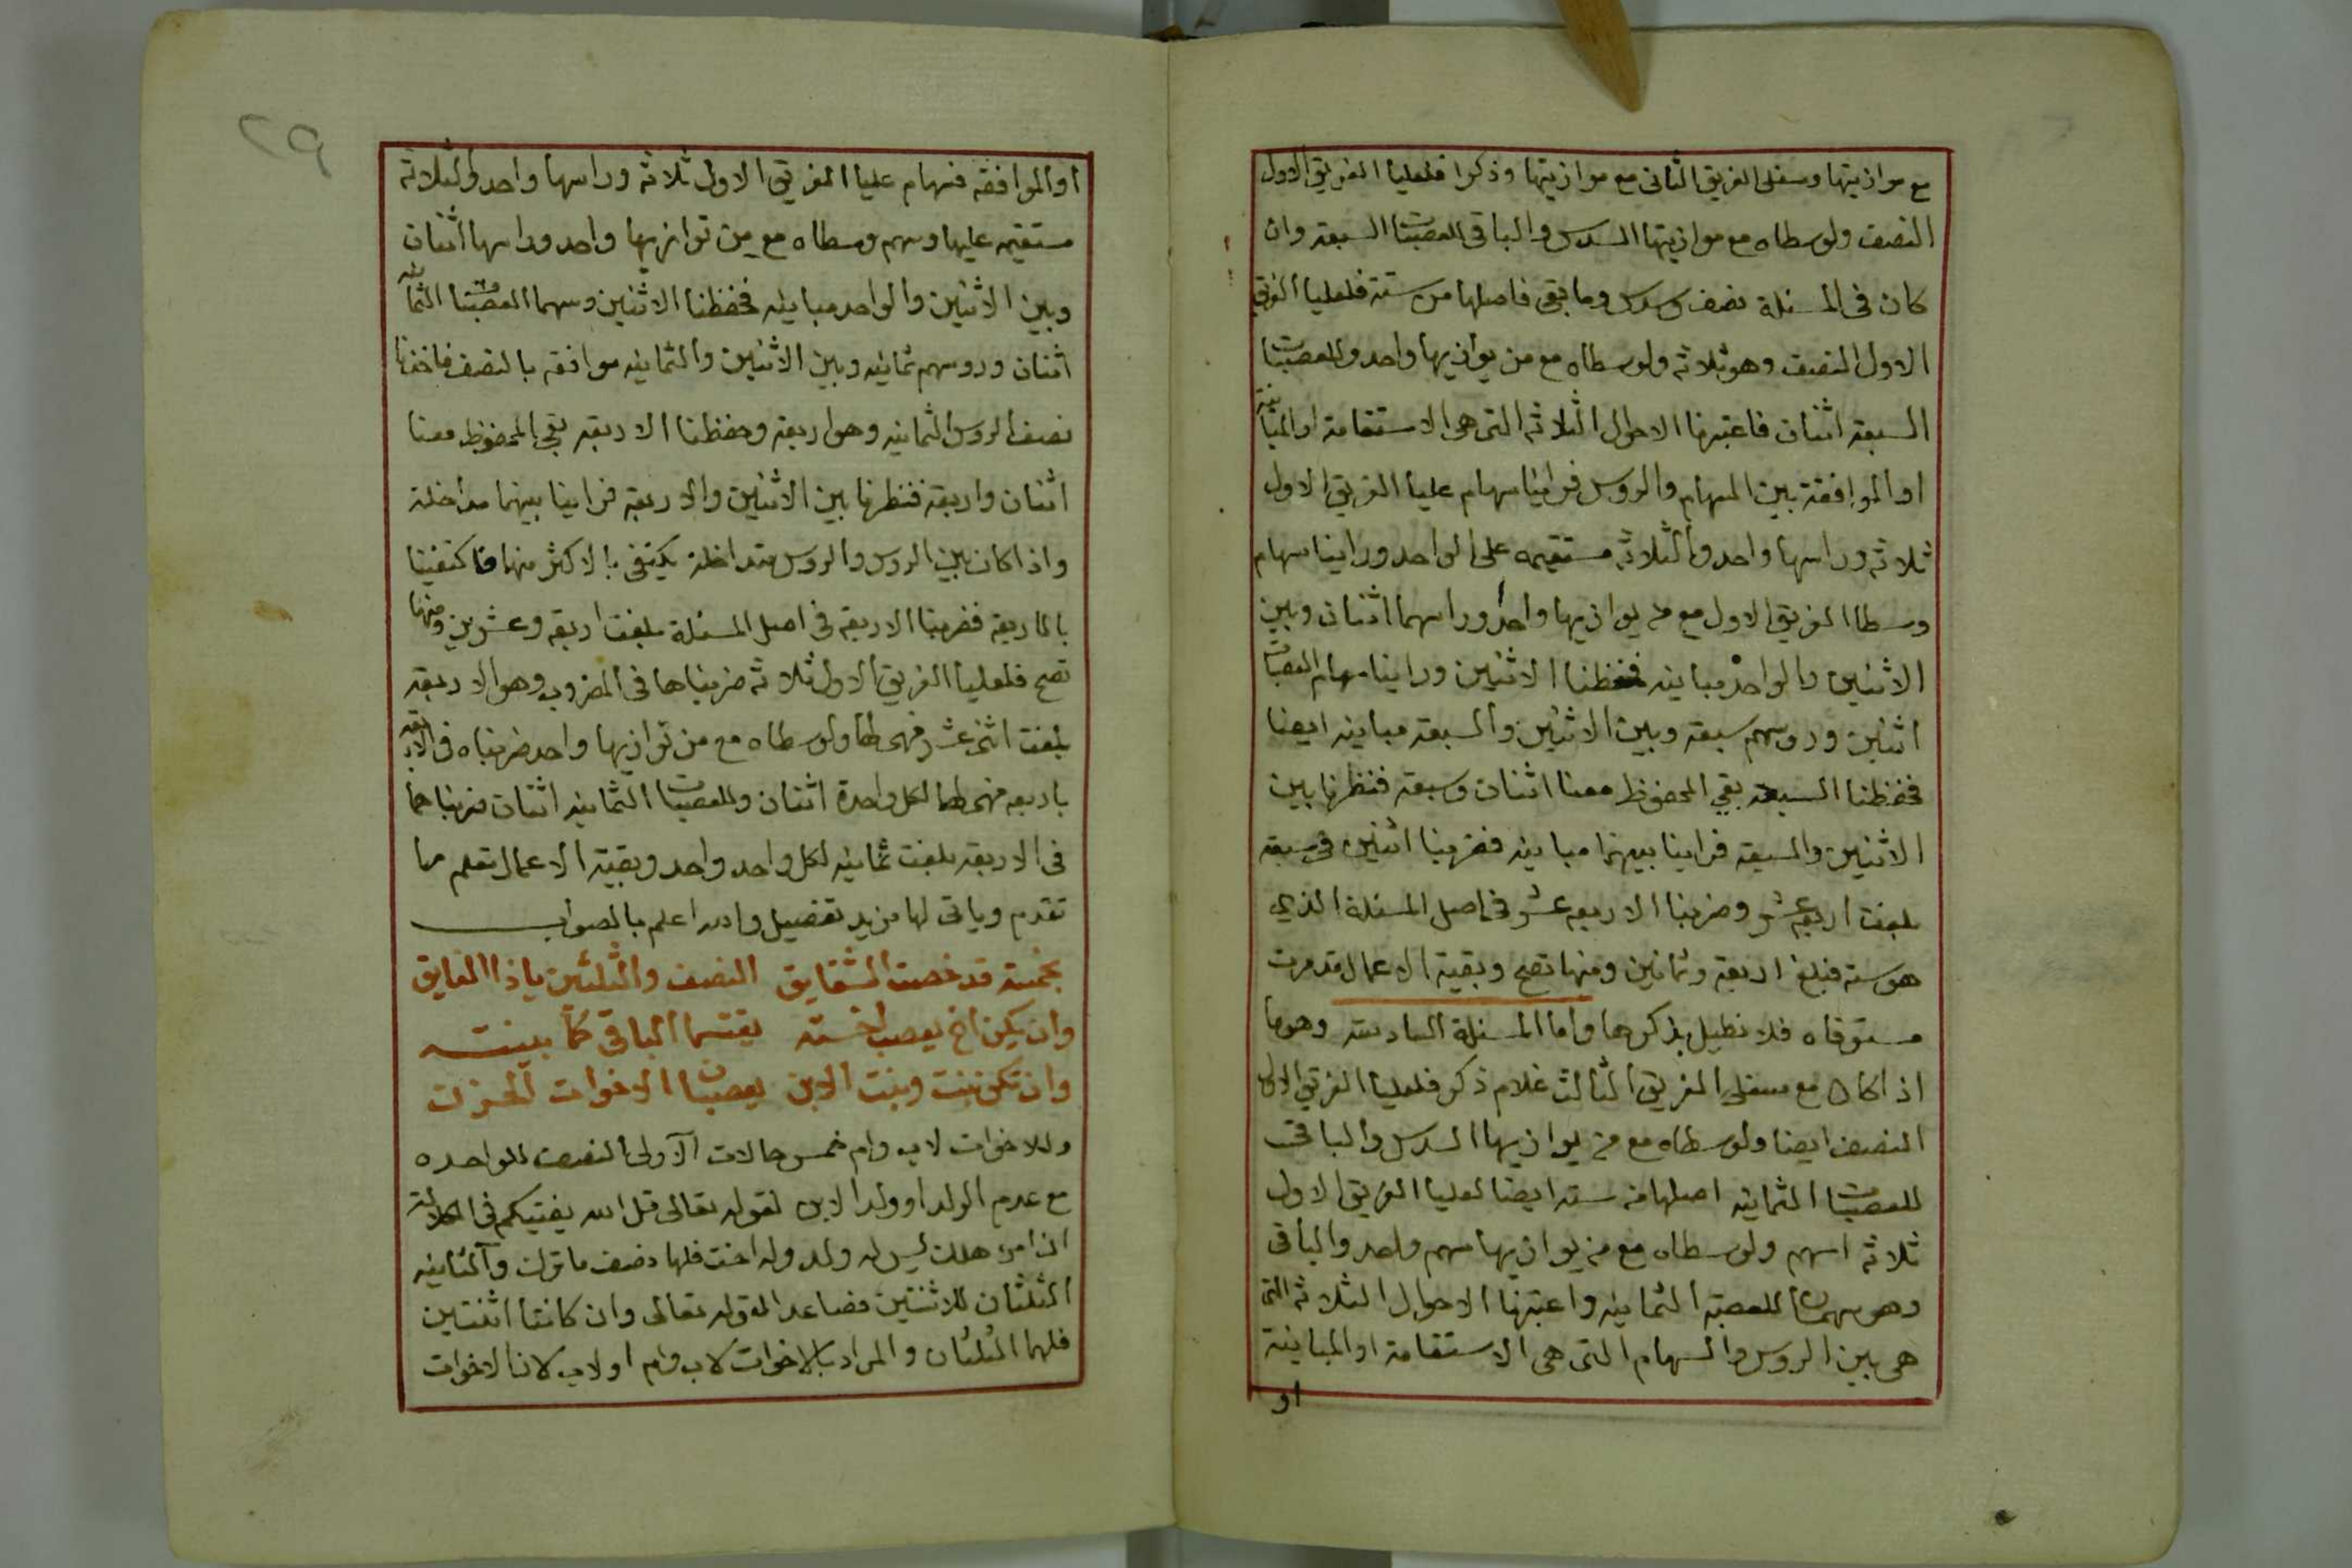 مع موازيتها وسفلى الفريق الثانى مع موازيتها وذكرا فلعليا الفريق الاول
النصف ولوسطاه مع موازيتها السدس والباقى للعصبات السبعة وان
كان فى المسئلة نصف وسدس وما بقى فاصلها من ستة فلعليا الفريق
الاول النصف وهو ثلاثة ولوسطاه مع من يوازيها واحد وللعصبات
السبعة اثنان فاعتبرنا الاحوال الثلاثة التى هى الاستقامة او المباينة
او الموافقة بين السهام والروس فراينا سهام عليا الفريق الاول
ثلاثة وراسها واحد والثلاثة مستقيمه على الواحد وراينا سهام
وسطا الفريق الاول مع من يوازيها واحد وراسهما اثنان وبين
الاثنين والواحد مباينه فحفظنا الاثنين وراينا سهام العصبات
اثنين وروسهم سبعة وبين الاثنين والسبعة مباينه ايضا
فحفظنا السبعة بقي المحفوظ معنا اثنان وسبعة فنظرنا بين
الاثنين والسبعة فراينا بينهما مباينه فضربنا اثنين فى سبعة
بلغت اربعة عشر وضربنا الاربعه عشر فى اصل المسئلة الذي
هو ستة فبلغ اربعة وثمانين ومنها تصح وبقية الاعمال قد مرت
مستوفاه فلا نطيل بذكرها واما المسئلة السادسة وهو ما
اذا كان مع سفلى الفريق الثالث غلام ذكر فلعليا الفريق الاول
النصف ايضا ولوسطاه مع من يوازيها السدس والباقى
للعصبات الثمانيه اصلها من ستة ايضا لعليا الفريق الاول
ثلاثة اسهم ولوسطاه مع من يوازيها سهم واحد والباقى
وهو سهمان للعصبة الثمانيه واعتبرنا الاحوال الثلاثة التى
هى بين الروس والسهام التى هى الاستقامة او المباينة
او
٢٩
او الموافقه فسهام عليا الفريق الاول ثلاثة وراسها واحد والثلاثة
مستقيمه عليها وسهم وسطاه مع من توازيها واحد وراسها اثنان
وبين الاثنين والواحد مباينه فحفظنا الاثنين وسهما العصبات الثمانيه
اثنان وروسهم ثمانيه وبين الاثنين والثمانيه موافقه بالنصف فاخذنا
نصف الروس الثمانيه وهو اربعة وحفظنا الاربعة بقي المحفوظ معنا
اثنان واربعة فنظرنا بين الاثنين والاربعة فراينا بينهما مداخلة
واذا كان بين الروس والروس متداخلة يكتفى بالاكثر منها فاكتفينا
بالاربعة فضربنا الاربعة فى اصل المسئلة بلغت اربعة وعشرين ومنها
تصح فلعليا الفريق الاول ثلاثة ضربناها فى المضروب وهو الاربعة
بلغت اثنى عشر فهى لها ولوسطاه مع من توازيها واحد ضربناه فى الاربعة
باربعه فهى لهما لكل واحدة اثنان وللعصبات الثمانيه اثنان ضربناهما
فى الاربعة بلغت ثمانيه لكل واحد واحد وبقية الاعمال تعلم مما
تقدم وياتى لها مزيد تفصيل والله اعلم بالصواب
بخمسة قد خصت الشقايق النصف والثلثين ياذا الفايق
وان يكن اخ يعصب اخته يقتسما الباقى كما بينته
وان تكن بنت وبنت الابن يعصبان الاخوات
وللاخوات لاب وام خمس حالات الاولى النصف للواحده
مع عدم الولد او ولد الابن لقوله تعالى قل الله يفتيكم فى الكلالة
ان امرؤ هلك ليس له ولد وله اخت فلها نصف ما ترك والثانيه
الثلثان للاثنتين فصاعدا لقوله تعالى وان كانتا اثنتين
فلهما الثلثان والمراد بالاخوات لاب وام او لاب لان الاخوات